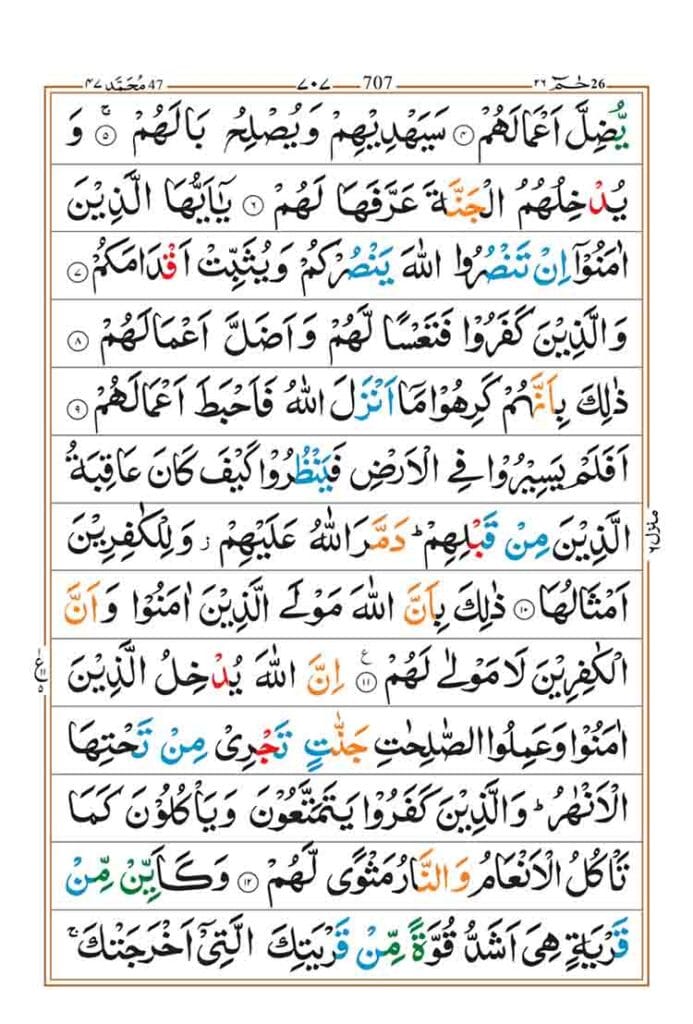 26 حٰمٓ ٢٦ — 707 — ٧٠٧ — 47 مُحَمَّد ٤٧
يُّضِلَّ اَعْمَالَهُمْ ۝٤ سَيَهْدِيْهِمْ وَيُصْلِحُ بَالَهُمْ ۝٥ وَ
يُدْخِلُهُمُ الْجَنَّةَ عَرَّفَهَا لَهُمْ ۝٦ يٰۤاَيُّهَا الَّذِيْنَ
اٰمَنُوْۤا اِنْ تَنْصُرُوا اللّٰهَ يَنْصُرْكُمْ وَيُثَبِّتْ اَقْدَامَكُمْ ۝٧
وَالَّذِيْنَ كَفَرُوْا فَتَعْسًا لَّهُمْ وَاَضَلَّ اَعْمَالَهُمْ ۝٨
ذٰلِكَ بِاَنَّهُمْ كَرِهُوْا مَاۤ اَنْزَلَ اللّٰهُ فَاَحْبَطَ اَعْمَالَهُمْ ۝٩
اَفَلَمْ يَسِيْرُوْا فِي الْاَرْضِ فَيَنْظُرُوْا كَيْفَ كَانَ عَاقِبَةُ
الَّذِيْنَ مِنْ قَبْلِهِمْ ؕ دَمَّرَ اللّٰهُ عَلَيْهِمْ ز وَلِلْكٰفِرِيْنَ
اَمْثَالُهَا ۝١٠ ذٰلِكَ بِاَنَّ اللّٰهَ مَوْلَى الَّذِيْنَ اٰمَنُوْا وَاَنَّ
الْكٰفِرِيْنَ لَا مَوْلٰى لَهُمْ ۝١١ اِنَّ اللّٰهَ يُدْخِلُ الَّذِيْنَ
اٰمَنُوْا وَعَمِلُوا الصّٰلِحٰتِ جَنّٰتٍ تَجْرِيْ مِنْ تَحْتِهَا
الْاَنْهٰرُ ؕ وَالَّذِيْنَ كَفَرُوْا يَتَمَتَّعُوْنَ وَيَاْكُلُوْنَ كَمَا
تَاْكُلُ الْاَنْعَامُ وَالنَّارُ مَثْوًى لَّهُمْ ۝١٢ وَكَاَيِّنْ مِّنْ
قَرْيَةٍ هِيَ اَشَدُّ قُوَّةً مِّنْ قَرْيَتِكَ الَّتِيْۤ اَخْرَجَتْكَ ۚ
منزل ٦
ع